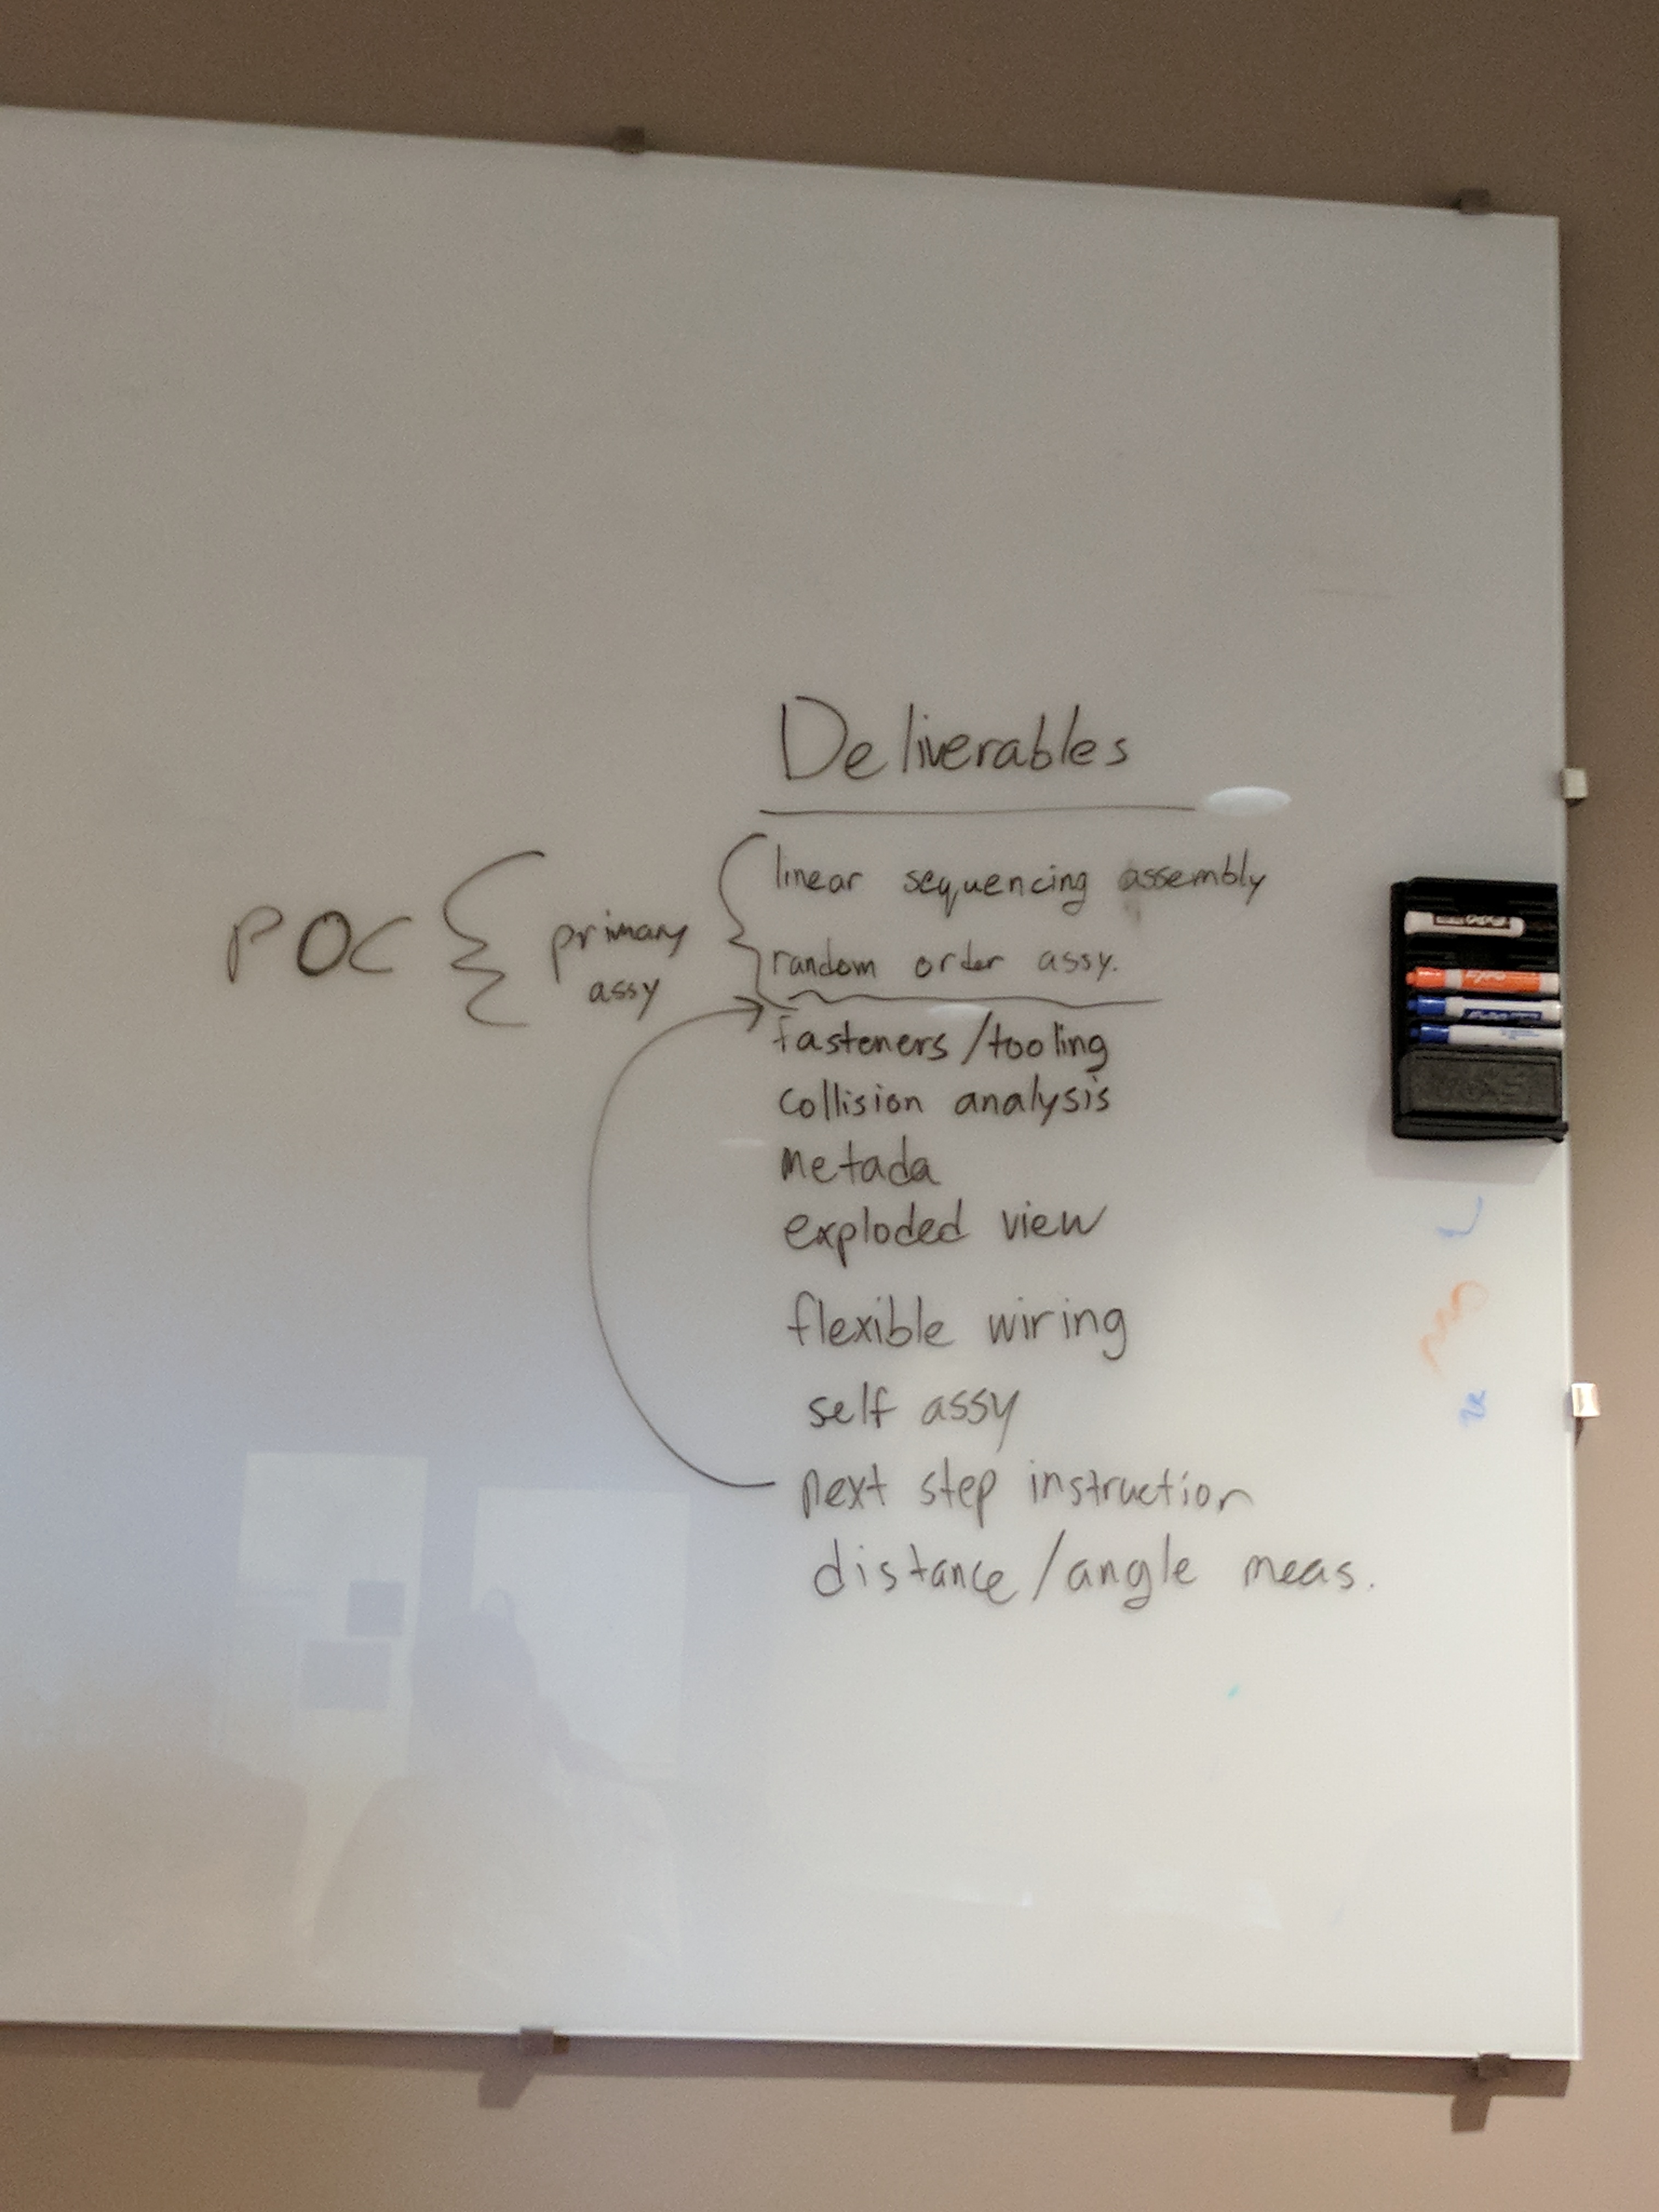 Deliverables
POC
primary
assy
linear sequencing assembly
random order assy.
fasteners/tooling
collision analysis
Metada
exploded view
flexible wiring
self assy
next step instruction
distance/angle meas.